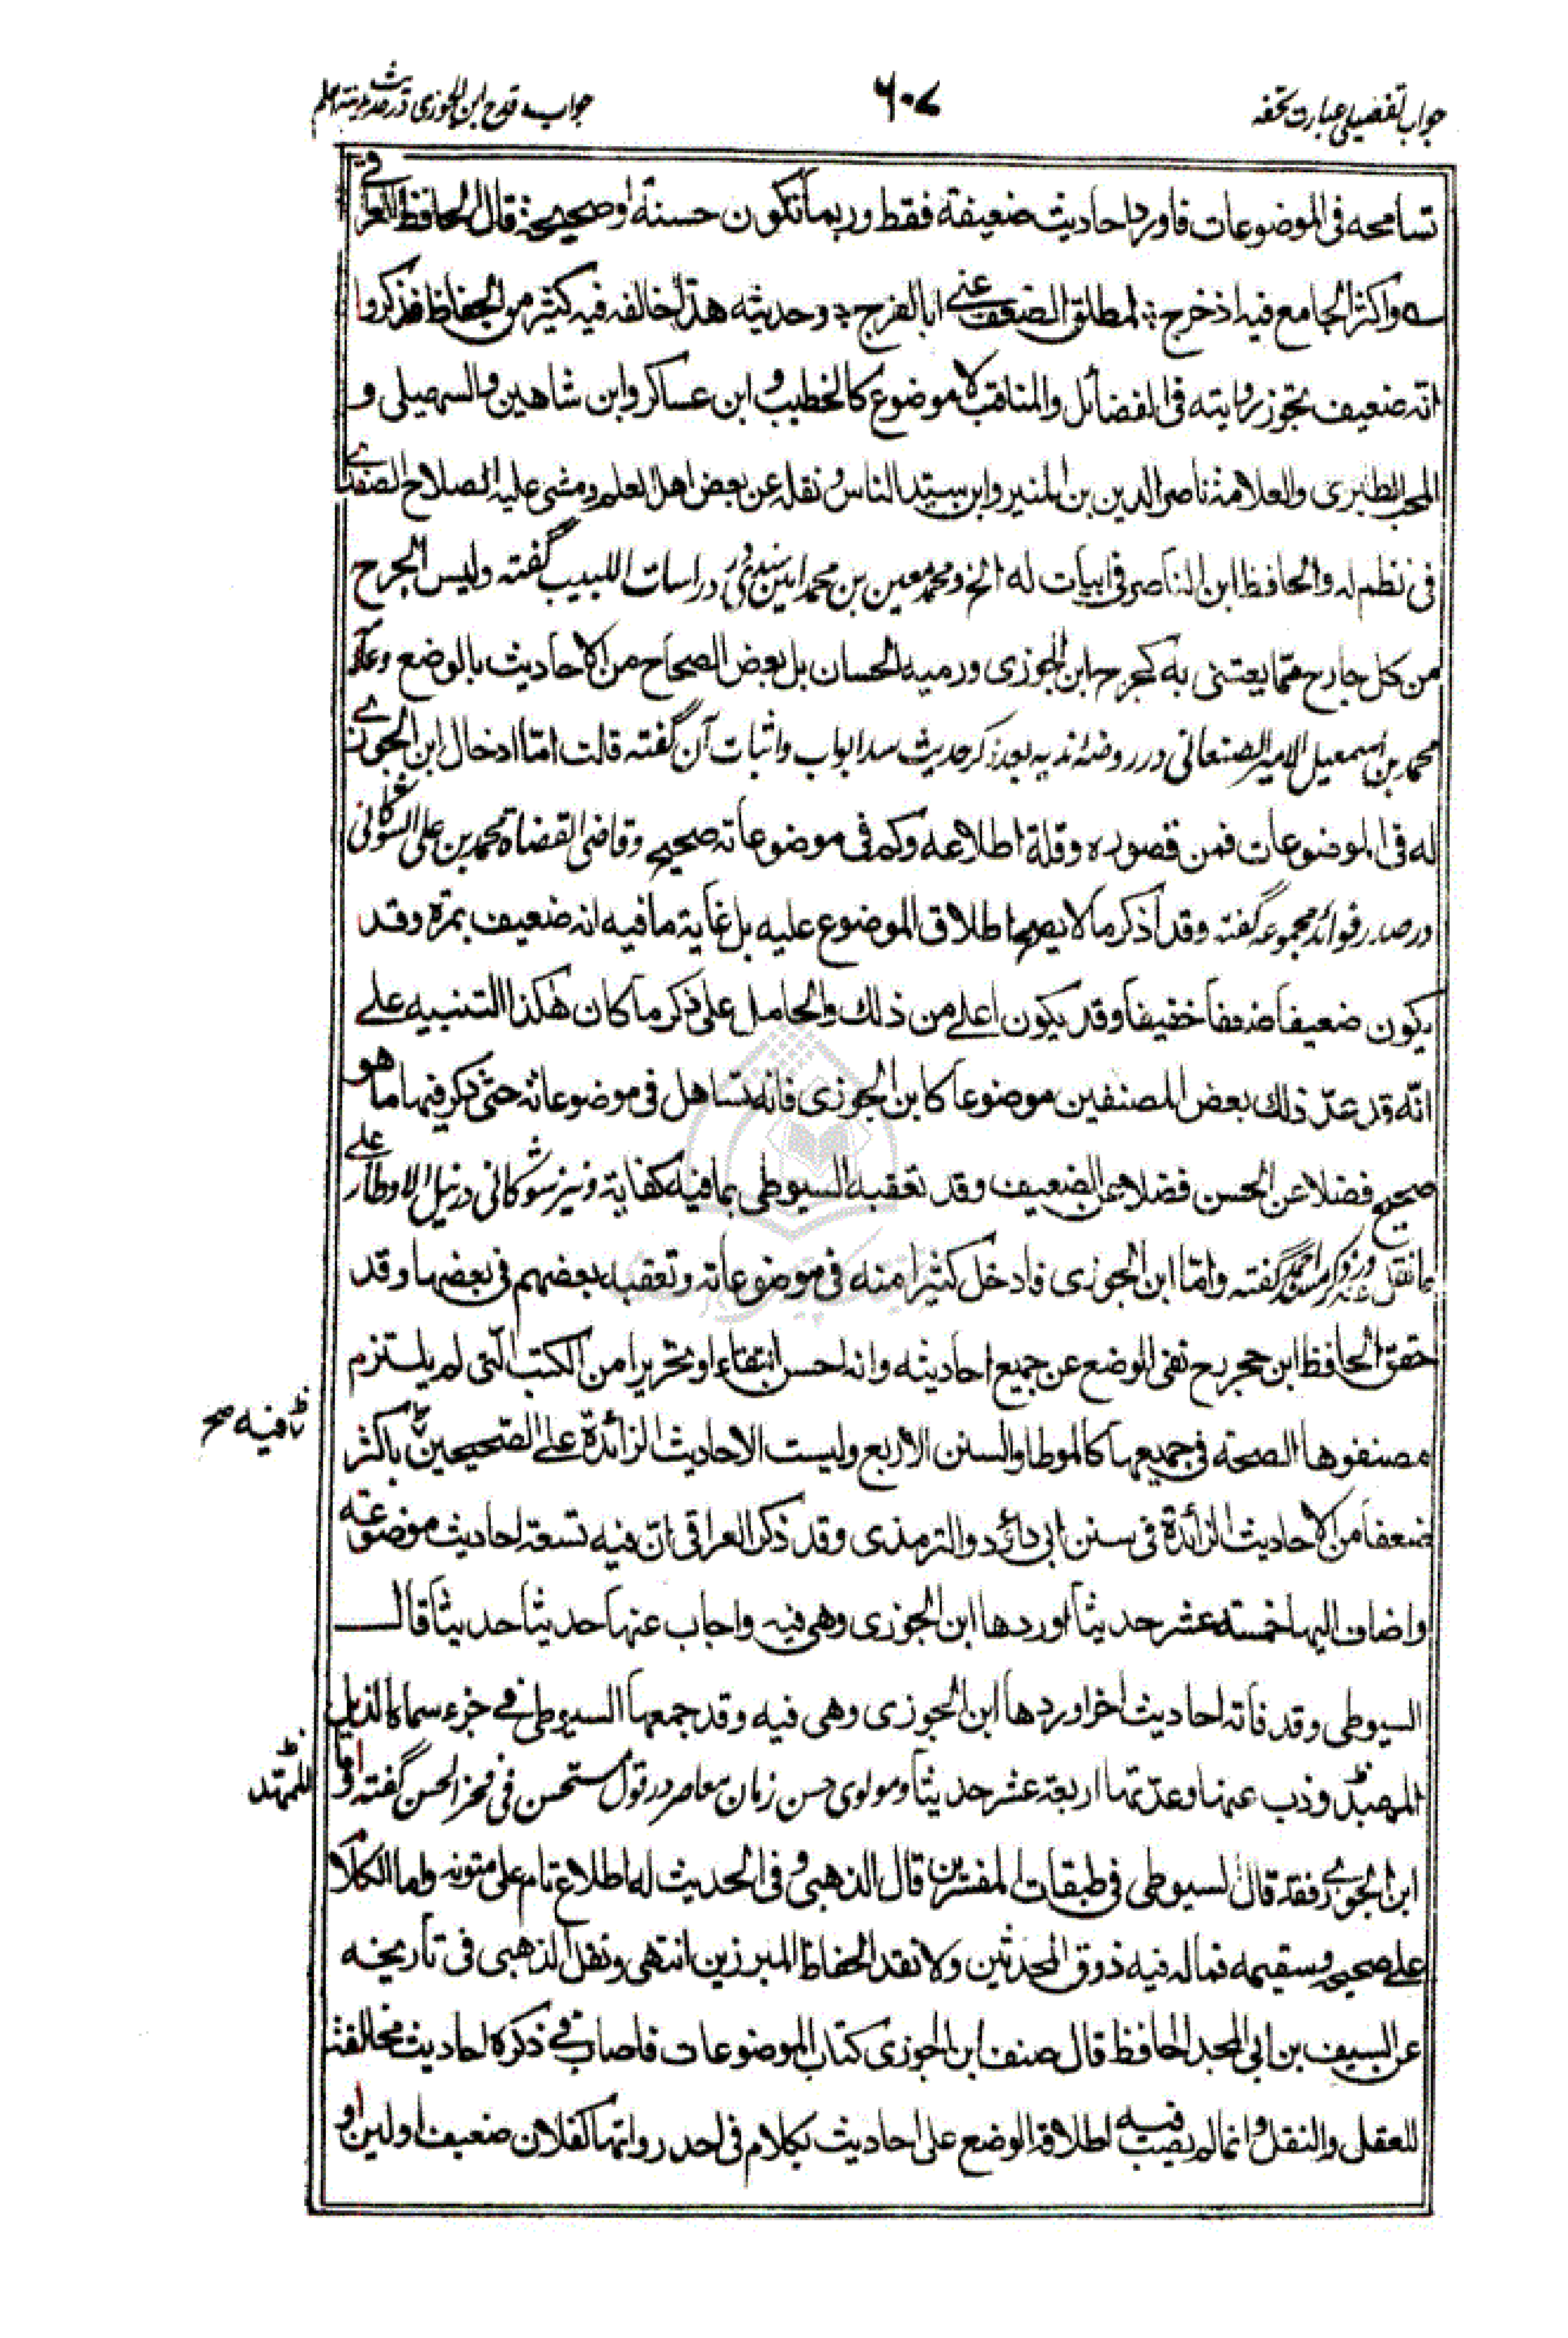 جواب تفصیلی عبارت تحفه
۶۰۷
جواب قدح ابن الجوزی در حدیث مدینة العلم
تسامحه فی الموضوعات فاورد احادیث ضعیفة فقط وربما تکون حسنة او صحیحة قال الحافظ العراقی
واکثر الجامع فیه اذ خرج لمطلق الضعف عنی ابا الفرج وحدیثه هذا خالفه فیه کثیر من الحفاظ فذکروا
انه ضعیف تجوز روایته فی الفضائل والمناقب لا موضوع کالخطیب و ابن عساکر وابن شاهین والسهیلی و
المحب الطبری والعلامة ناصر الدین بن المنیر وابن سید الناس ونقله عن بعض اهل العلم ومشی علیه الصلاح الصفدی
فی نظم له والحافظ ابن الناصر فی ابیات له الخ ومحمد معین بن محمد امین سندی در دراسات اللبیب گفته ولیس الجرح
من کل جارح مما یعتنی به کجرح ابن الجوزی ورمیه الحسان بل بعض الصحاح من الاحادیث بالوضع وعلامه
محمد بن اسمعیل الامیر الصنعانی در روضه ندیه بعد ذکر حدیث سد ابواب واثبات آن گفته قلت امّا ادخال ابن الجوزی
له فی الموضوعات فمن قصوره وقلة اطلاعه وکم فی موضوعاته صحیح وقاضی القضاة محمد بن علی الشوکانی
در صدر فوائد مجموعه گفته وقد اذکر مالا یصح اطلاق الموضوع علیه بل غایة ما فیه انه ضعیف بمرة وقد
یکون ضعیفاً ضعفاً خفیفاً وقد یکون اعلی من ذلك والحامل علی ذکر ما کان هکذا التنبیه علی
انّه قد عدّ ذلك بعض المصنفین موضوعا کابن الجوزی فانه تساهل فی موضوعاته حتی ذکر فیها ما هو
صحیح فضلا عن الحسن فضلا عن الضعیف وقد تعقبه السیوطی بما فیه کفایة ونیز شوکانی در نیل الاوطار علی
ما نقل عنه در ذکر مسند احمد گفته وامّا ابن الجوزی فادخل کثیرا منه فی موضوعاته وتعقبه بعضهم فی بعضها وقد
حقق الحافظ ابن حجر رح نفی الوضع عن جمیع احادیثه وانه احسن انتقاء او تحریرا من الکتب الّتی لم یلتزم
مصنفوها الصحة فی جمیعها کالموطا والسنن الاربع ولیست الاحادیث الزائدة علی الصّحیحین باکثر
فیه صح
ضعفا من الاحادیث الزائدة فی سنن ابی دائود والترمذی وقد ذکر العراقی انّ فیه تسعة احادیث موضوعة
واضاف الیها خمسة عشر حدیثا اوردها ابن الجوزی وهی فیه واجاب عنها حدیثا حدیثا قال
السیوطی وقد فاته احادیث اخر اوردها ابن الجوزی وهی فیه وقد جمعها السیوطی فی جزء سماه الذیل
الممهد وذب عنها وعدّتها اربعة عشر حدیثاً ومولوی حسن زمان معاصر در قول مستحسن فی فخر الحسن گفته امّا
للممهّد
ابن الجوزی فقد قال السیوطی فی طبقات المفسّرین قال الذهبی وفی الحدیث له اطلاع تام علی متونه واما الکلام
علی صحیحه وسقیمه فما له فیه ذوق المحدثین ولا نقد الحفاظ المبرزین انتهی ونقل الذهبی فی تاریخه
عن السیف بن ابی المجد الحافظ قال صنف ابن الجوزی کتاب الموضوعات فاصاب فی ذکره احادیث مخالفة
للعقل والنقل وانما لم یصب فیه اطلاقه الوضع علی احادیث بکلام فی احد رواتها کفلان ضعیف او لین او